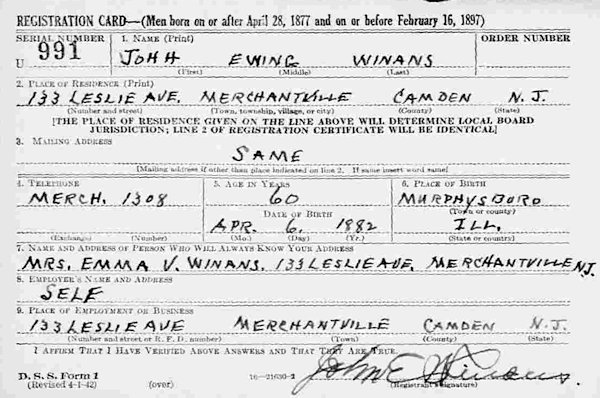 REGISTRATION CARD—(Men born on or after April 28, 1877 and on or before February 16, 1897)
SERIAL NUMBER 1. NAME (Print) ORDER NUMBER
U 991 JOHH EWING WINANS
(First) (Middle) (Last)
2. PLACE OF RESIDENCE (Print)
133 LESLIE AVE. MERCHANTVILLE CAMDEN N.J.
(Number and street) (Town, township, village, or city) (County) (State)
[THE PLACE OF RESIDENCE GIVEN ON THE LINE ABOVE WILL DETERMINE LOCAL BOARD
JURISDICTION; LINE 2 OF REGISTRATION CERTIFICATE WILL BE IDENTICAL]
3. MAILING ADDRESS
SAME
[Mailing address if other than place indicated on line 2. If same insert word same]
4. TELEPHONE 5. AGE IN YEARS 6. PLACE OF BIRTH
MERCH. 1308 60 MURPHYSBORO
DATE OF BIRTH (Town or county)
APR. 6, 1882 ILL.
(Exchange) (Number) (Mo.) (Day) (Yr.) (State or country)
7. NAME AND ADDRESS OF PERSON WHO WILL ALWAYS KNOW YOUR ADDRESS
MRS. EMMA V. WINANS. 133 LESLIE AVE, MERCHANTVILLE N.J.
8. EMPLOYER'S NAME AND ADDRESS
SELF
9. PLACE OF EMPLOYMENT OR BUSINESS
133 LESLIE AVE MERCHANTVILLE CAMDEN N.J.
(Number and street or R. F. D. number) (Town) (County) (State)
I AFFIRM THAT I HAVE VERIFIED ABOVE ANSWERS AND THAT THEY ARE TRUE.
John E Winans.
D. S. S. Form 1 16—21630-2 (Registrant's signature)
(Revised 4-1-42) (over)